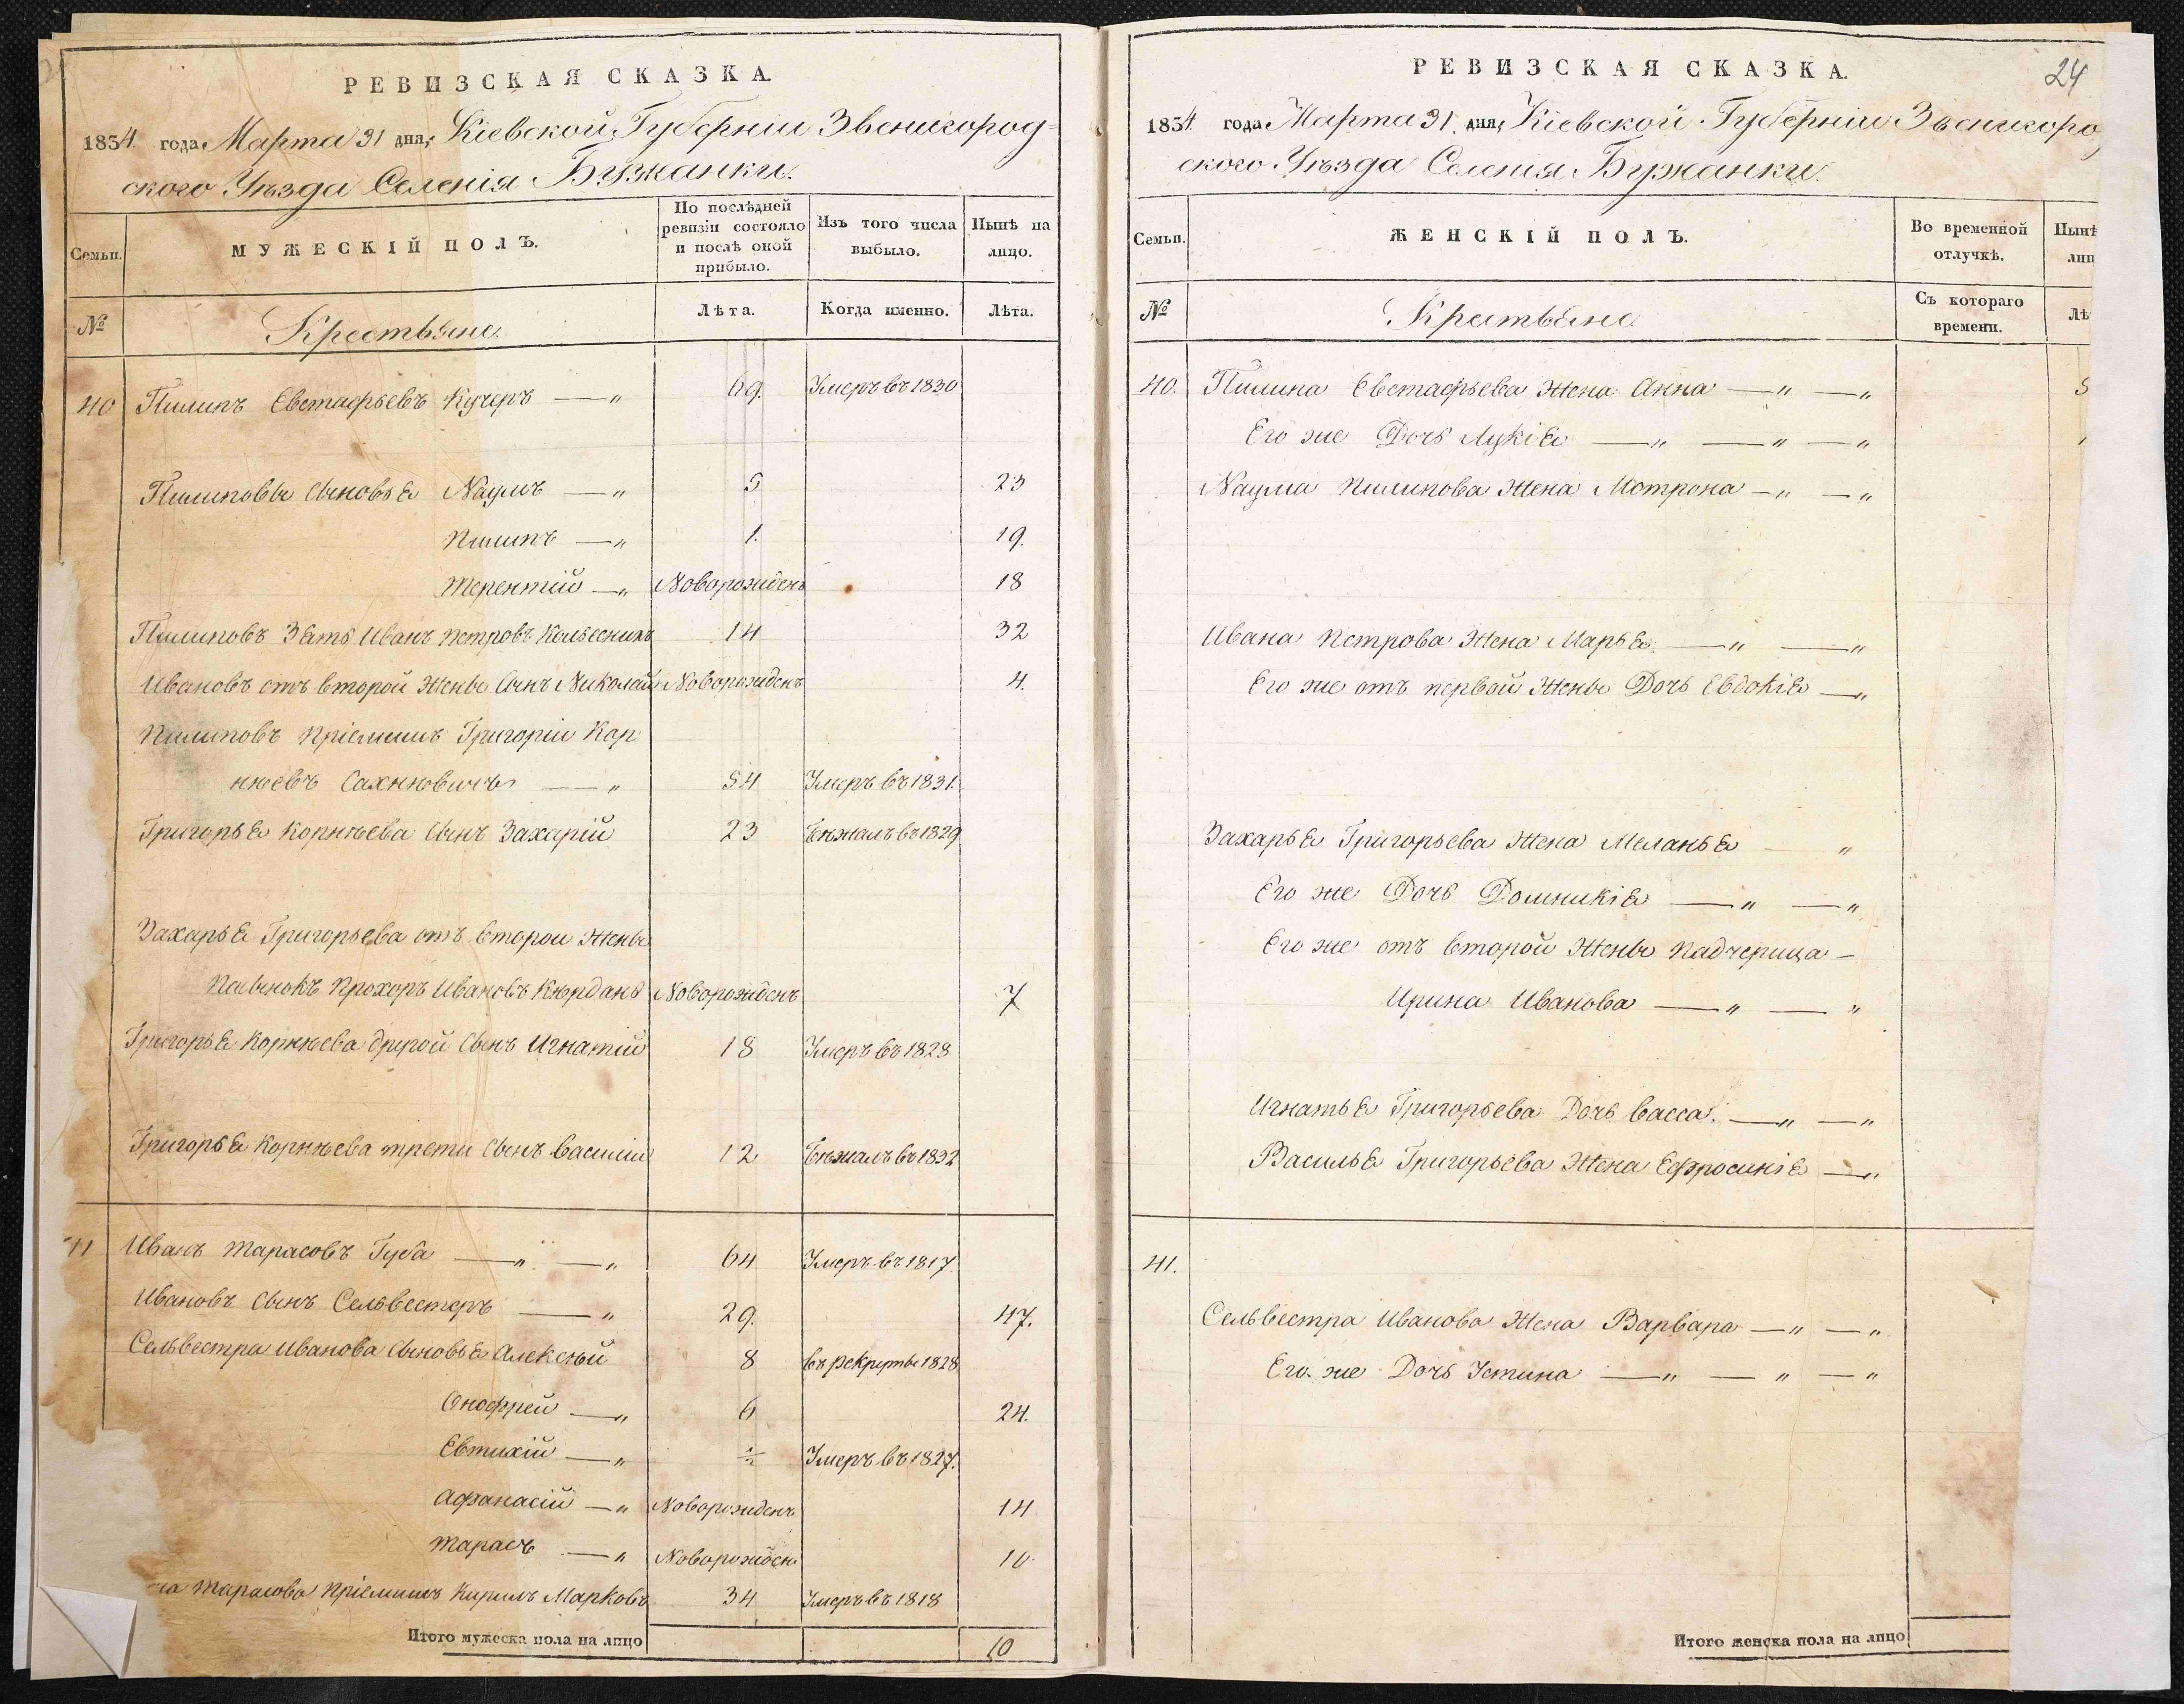 РЕВИЗСКАЯ СКАЗКА.
1834. года Марта 31 дня, Кіевской Губерніи Звенигород-
ского Уѣзда Селенія Бужанки.
Семьи.
МУЖЕСКІЙ ПОЛЪ.
По послѣдней ревизіи состояло и послѣ оной прибыло.
Изъ того числа выбыло.
Нынѣ на лицо.
№
Крестьяне
Лѣта.
Когда именно.
Лѣта.
40 Пилипъ Евстафьевъ Кучеръ — „ 69. Умеръ въ 1830
Пилиповы Сыновья Наумъ — „ 5 23
Пилипъ — „ 1. 19.
Терентій — „ Новорожденъ 18
Пилиповъ Зять Иванъ Петровъ Колесникъ 14 32
Ивановъ отъ второй Жены Сынъ Николай Новорожденъ 4.
Пилиповъ Пріемышъ Григорій Кор
нѣевъ Сахнювичъ — „ 54 Умеръ въ 1831.
Григорья Корнѣева Сынъ Захарій 23 Бѣжалъ въ 1829
Захарья Григорьева отъ второй Жены
Пасынокъ Прохоръ Ивановъ Кюрданъ Новорожденъ 7
Григорья Корнѣева другой Сынъ Игнатій 18 Умеръ въ 1828
Григорья Корнѣева трети Сынъ Василій 12 Бѣжалъ въ 1832
41 Иванъ Тарасовъ Губа — „ — „ 64 Умеръ въ 1817
Ивановъ Сынъ Сельвестеръ — „ 29. 47.
Сельвестра Иванова Сыновья Алексѣй 8 въ рекруты 1828
Онофрей — „ 6 24.
Евтихій — „ ½ Умеръ въ 1827.
Афанасій — „ Новорожденъ 14
Тарасъ — „ Новорожден 10
на Тарасова Пріемышъ Кирилъ Марковъ 34 Умеръ въ 1818
Итого мужеска пола на лицо 10
РЕВИЗСКАЯ СКАЗКА.
24
1834. года Марта 31. дня, Кіевской Губерніи Звенигоро
ского Уѣзда Селенія Бужанки.
Семьи.
ЖЕНСКІЙ ПОЛЪ.
Во временной отлучкѣ.
Нынѣ
лиц
№
Крестьяне
Съ котораго времени.
Лѣ
40. Пилипа Евстафьева Жена Анна — „ — „ 5
Его же Дочь Лукія — „ — „ — „
Наума Пилипова Жена Мотрона — „ — „
Ивана Петрова Жена Марья — „ — „
Его же отъ первой Жены Дочь Евдокія — „
Захарья Григорьева Жена Меланья — „
Его же Дочь Домникія — „ — „
Его же отъ второй Жены Падчерица —
Ирина Иванова — „ — „
Игнатья Григорьева Дочь Васса. — „ — „
Василья Григорьева Жена Ефросинія — „
41.
Сельвестра Иванова Жена Варвара — „ — „
Его же Дочь Устина — „ — „ — „
Итого женска пола на лицо